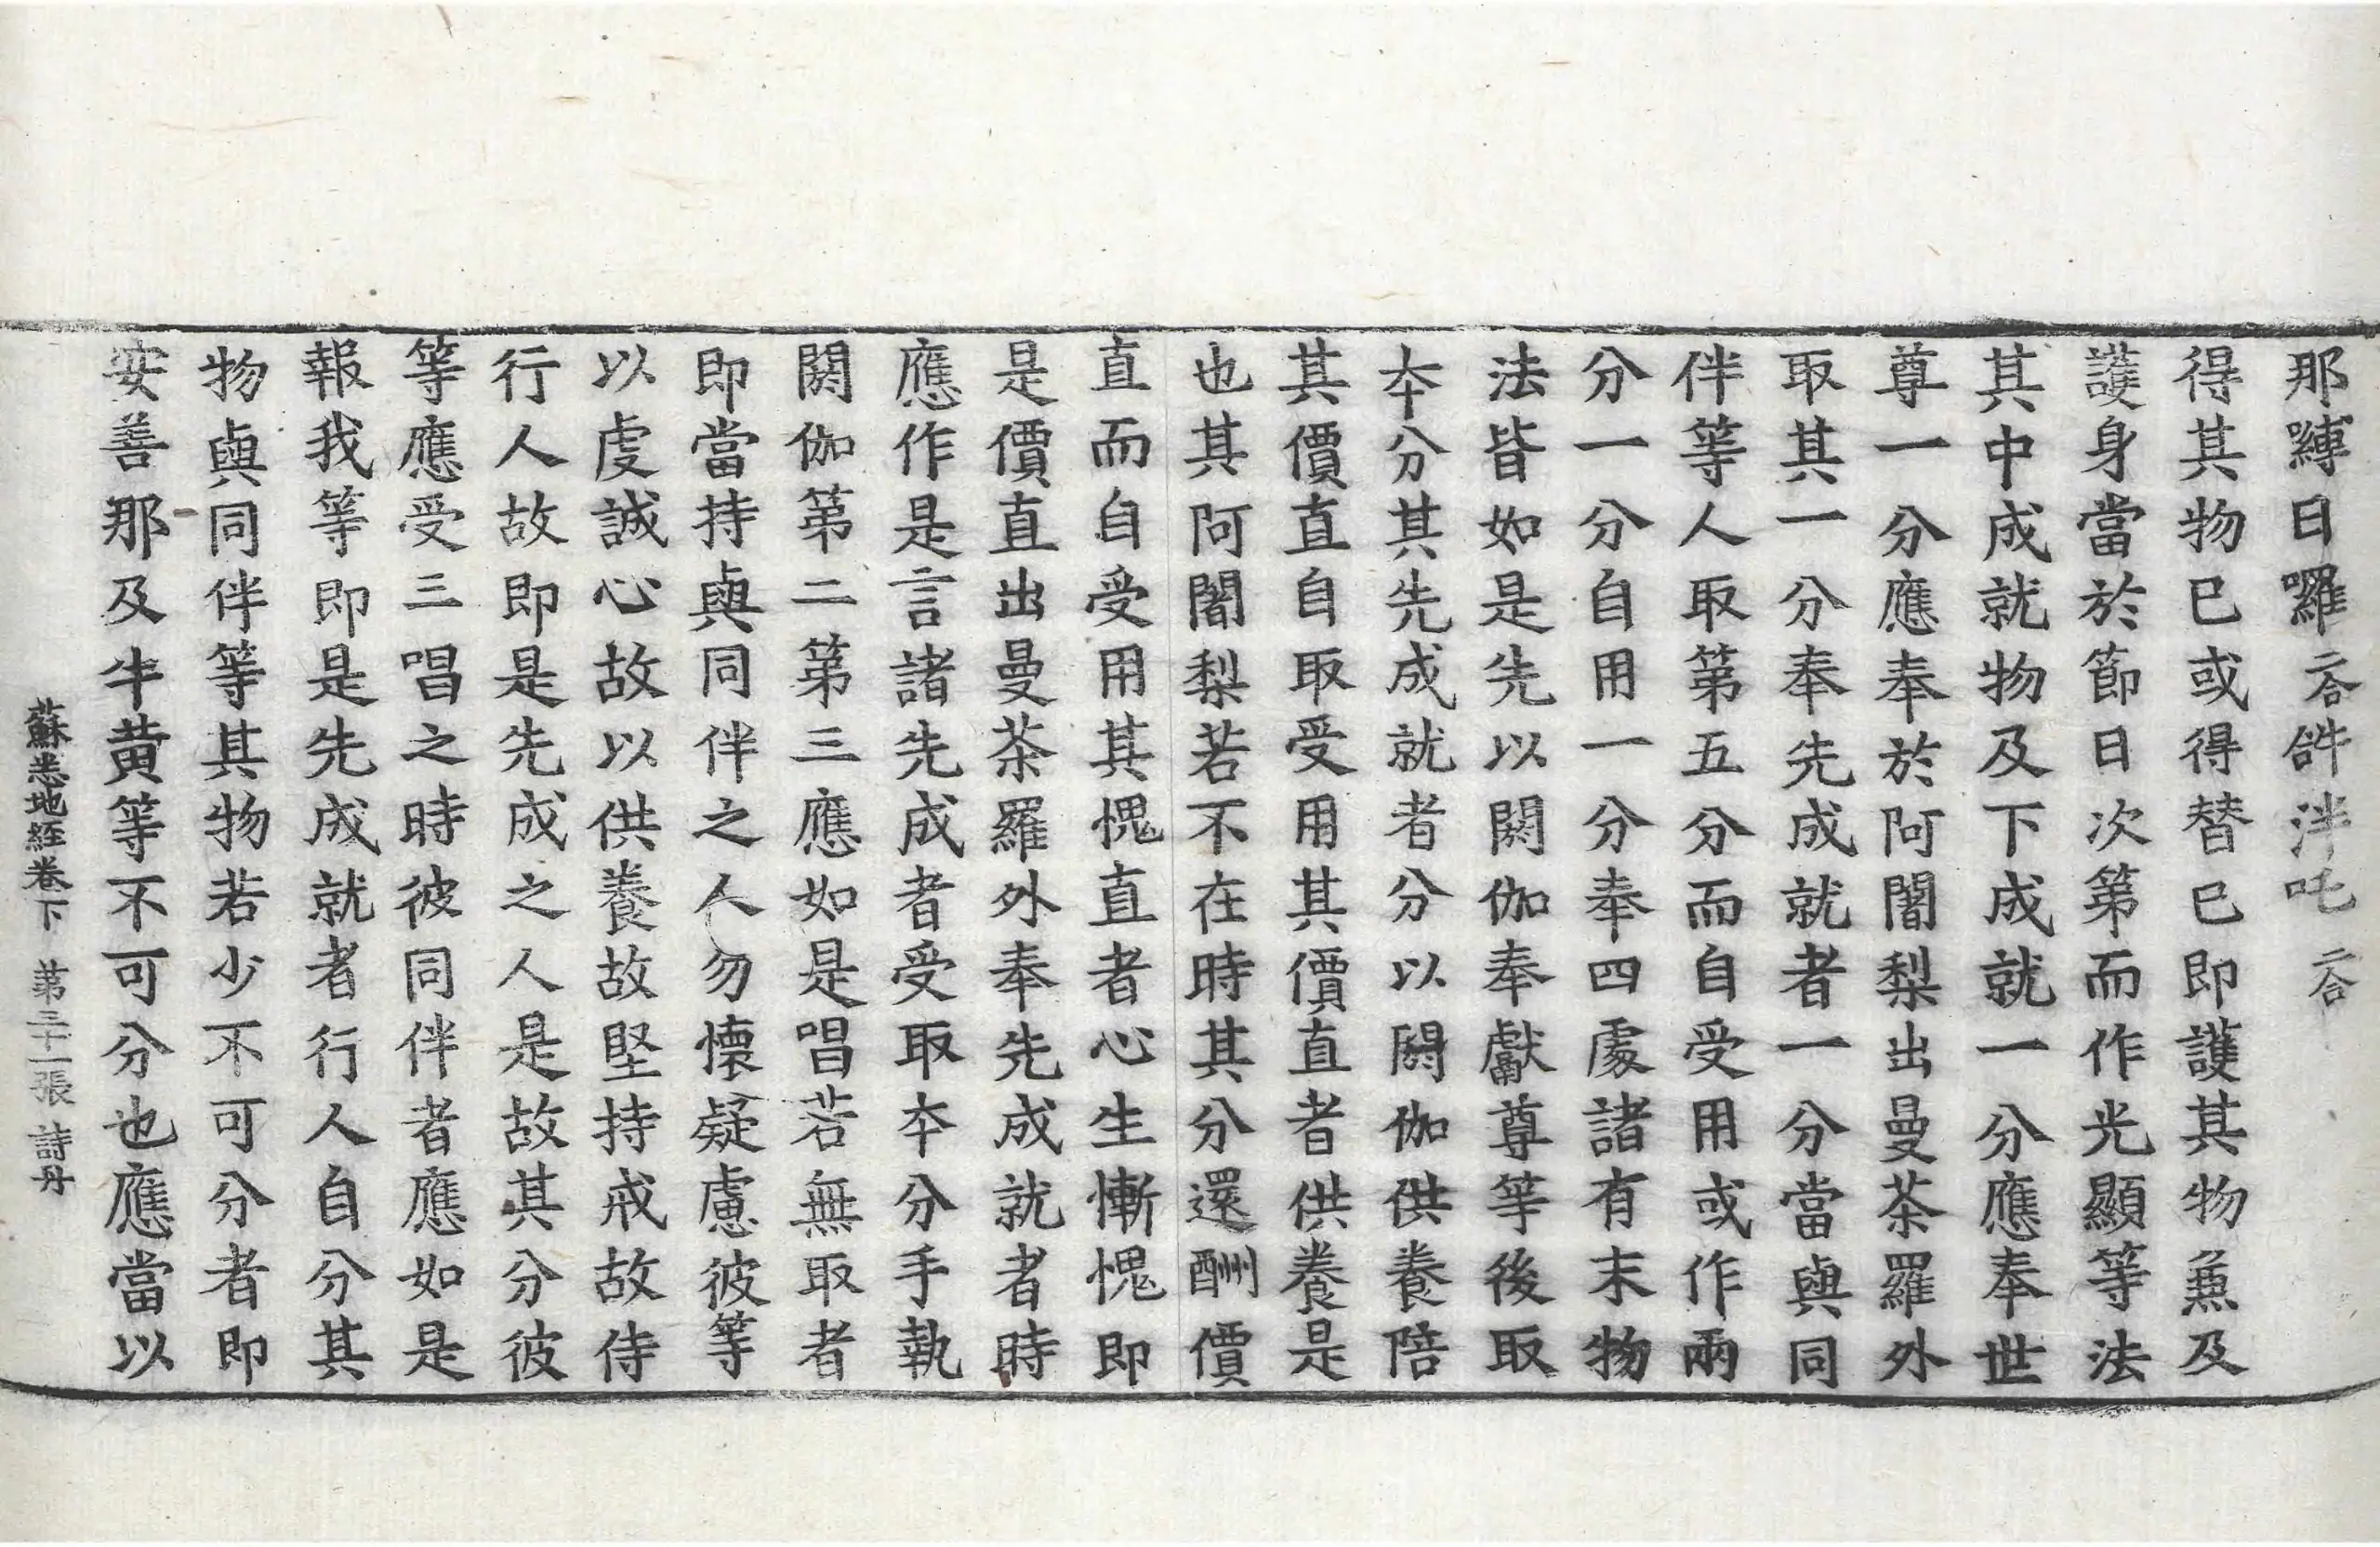 那嚩日囉二合𤙖泮吒二合
得其物已或得替已即護其物兼及
護身當於節日次第而作光顯等法
其中成就物及下成就一分應奉世
尊一分應奉於阿闍梨出曼茶羅外
取其一分奉先成就者一分當與同
伴等人取第五分而自受用或作兩
分一分自用一分奉四處諸有末物
法皆如是先以閼伽奉獻尊等後取
本分其先成就者分以閼伽供養陪
其價直自取受用其價直者供養是
也其阿闍梨若不在時其分還酬價
直而自受用其愧直者心生慚愧即
是價直出曼茶羅外奉先成就者時
應作是言諸先成者受取本分手執
閼伽第二第三應如是唱若無取者
即當持與同伴之人勿懷疑慮彼等
以虔誠心故以供養故堅持戒故侍
行人故即是先成之人是故其分彼
等應受三唱之時彼同伴者應如是
報我等即是先成就者行人自分其
物與同伴等其物若少不可分者即
安善那及牛黃等不可分也應當以
蘇悉地經卷下 第三十一張 詩丹